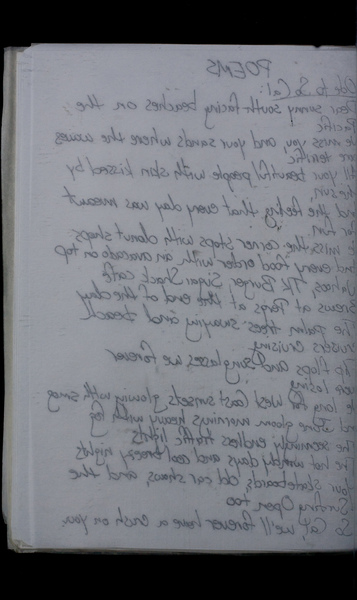 POEMS
Ode to So Cal:
Dear sunny south facing beaches on the
Pacific
We miss you and your sands where the waves
are terrific
All your beautiful people with skin kissed by
the sun,
And the feeling that every day was meant
for fun
I miss the corner stops with donut shops
and every food order with an avocado on top
Wahoos, TK Burger, Sugar Shack café
Brews at at the end of the day
The palm trees swaying and beach
cruisers cruising
flip flops and Sunglasses we forever
were losing
long for West Coast sunsets glowing with smog
and June gloom mornings heavy with fog
The seemingly endless traffic lights
The hot windy days and cool breezy nights
Your skateboards, old car shows and the
Surfing Open too
So Cal, we'll forever have a crush on you.